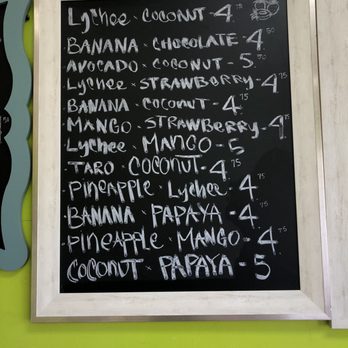 Lychee × COCONUT - 4.75
BANANA × CHOCOLATE - 4.50
AVOCADO × COCONUT - 5.50
Lychee × STRAWBERRY - 4.75
BANANA × COCONUT - 4.75
MANGO × STRAWBERRY - 4.75
Lychee × MANGO - 5
TARO × COCONUT - 4.75
PINEAPPLE × Lychee - 4.75
BANANA × PAPAYA - 4.75
PINEAPPLE × MANGO - 4.75
COCONUT × PAPAYA - 5